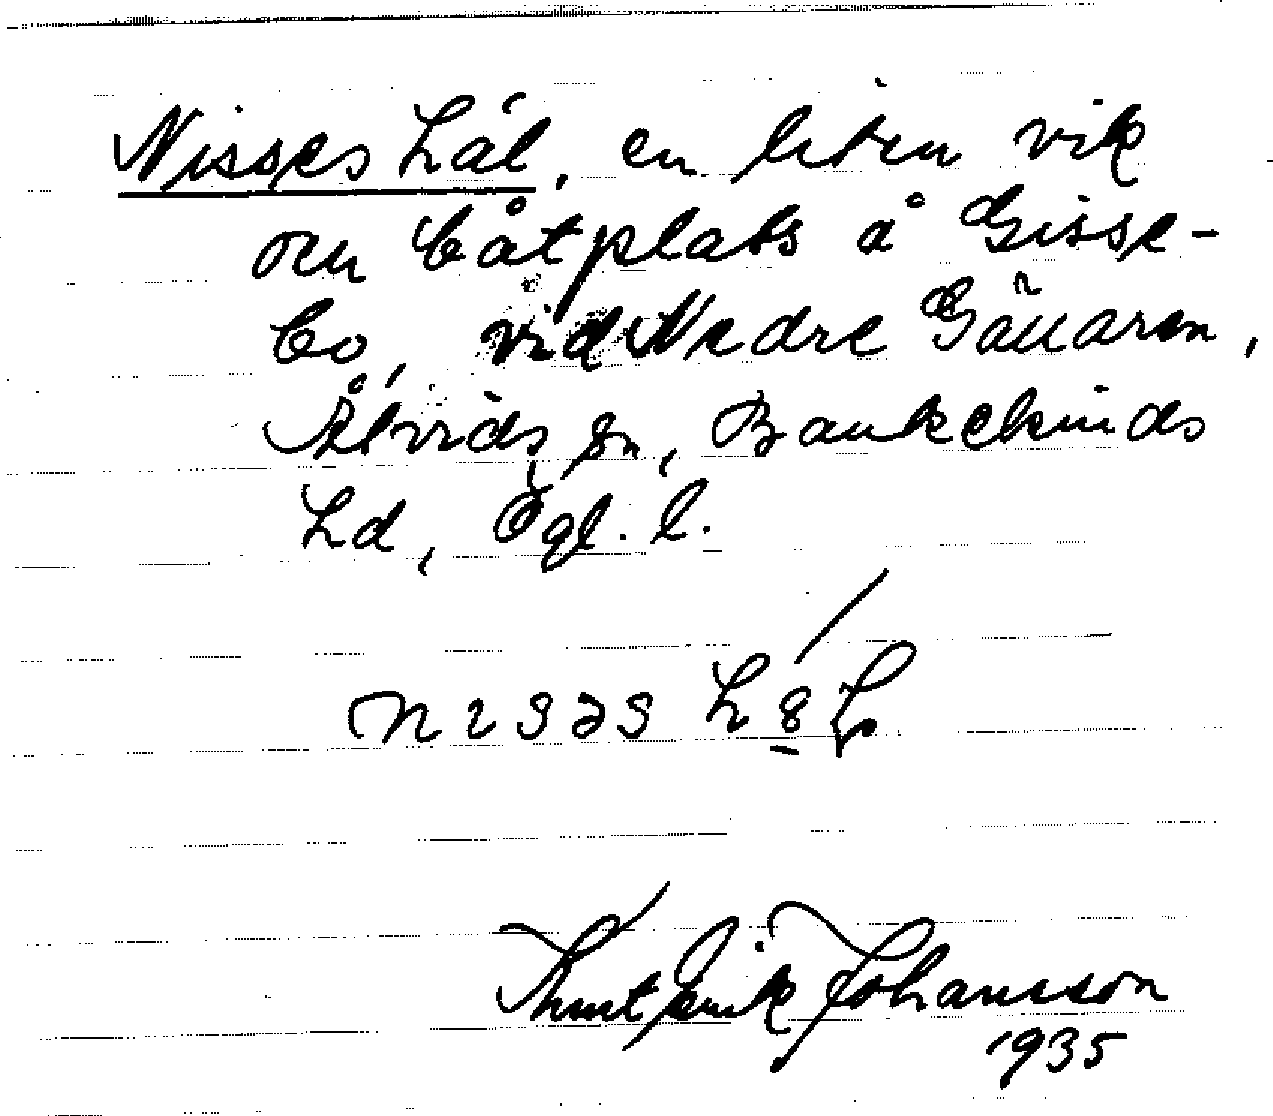 Nisses hål, en liten vik
och båtplats å Gisse-
bo, vid Nedre Gällaren,
Åtvids sn, Bankekinds
hd, Ögl. l.
Knut Erik Johansson
1935